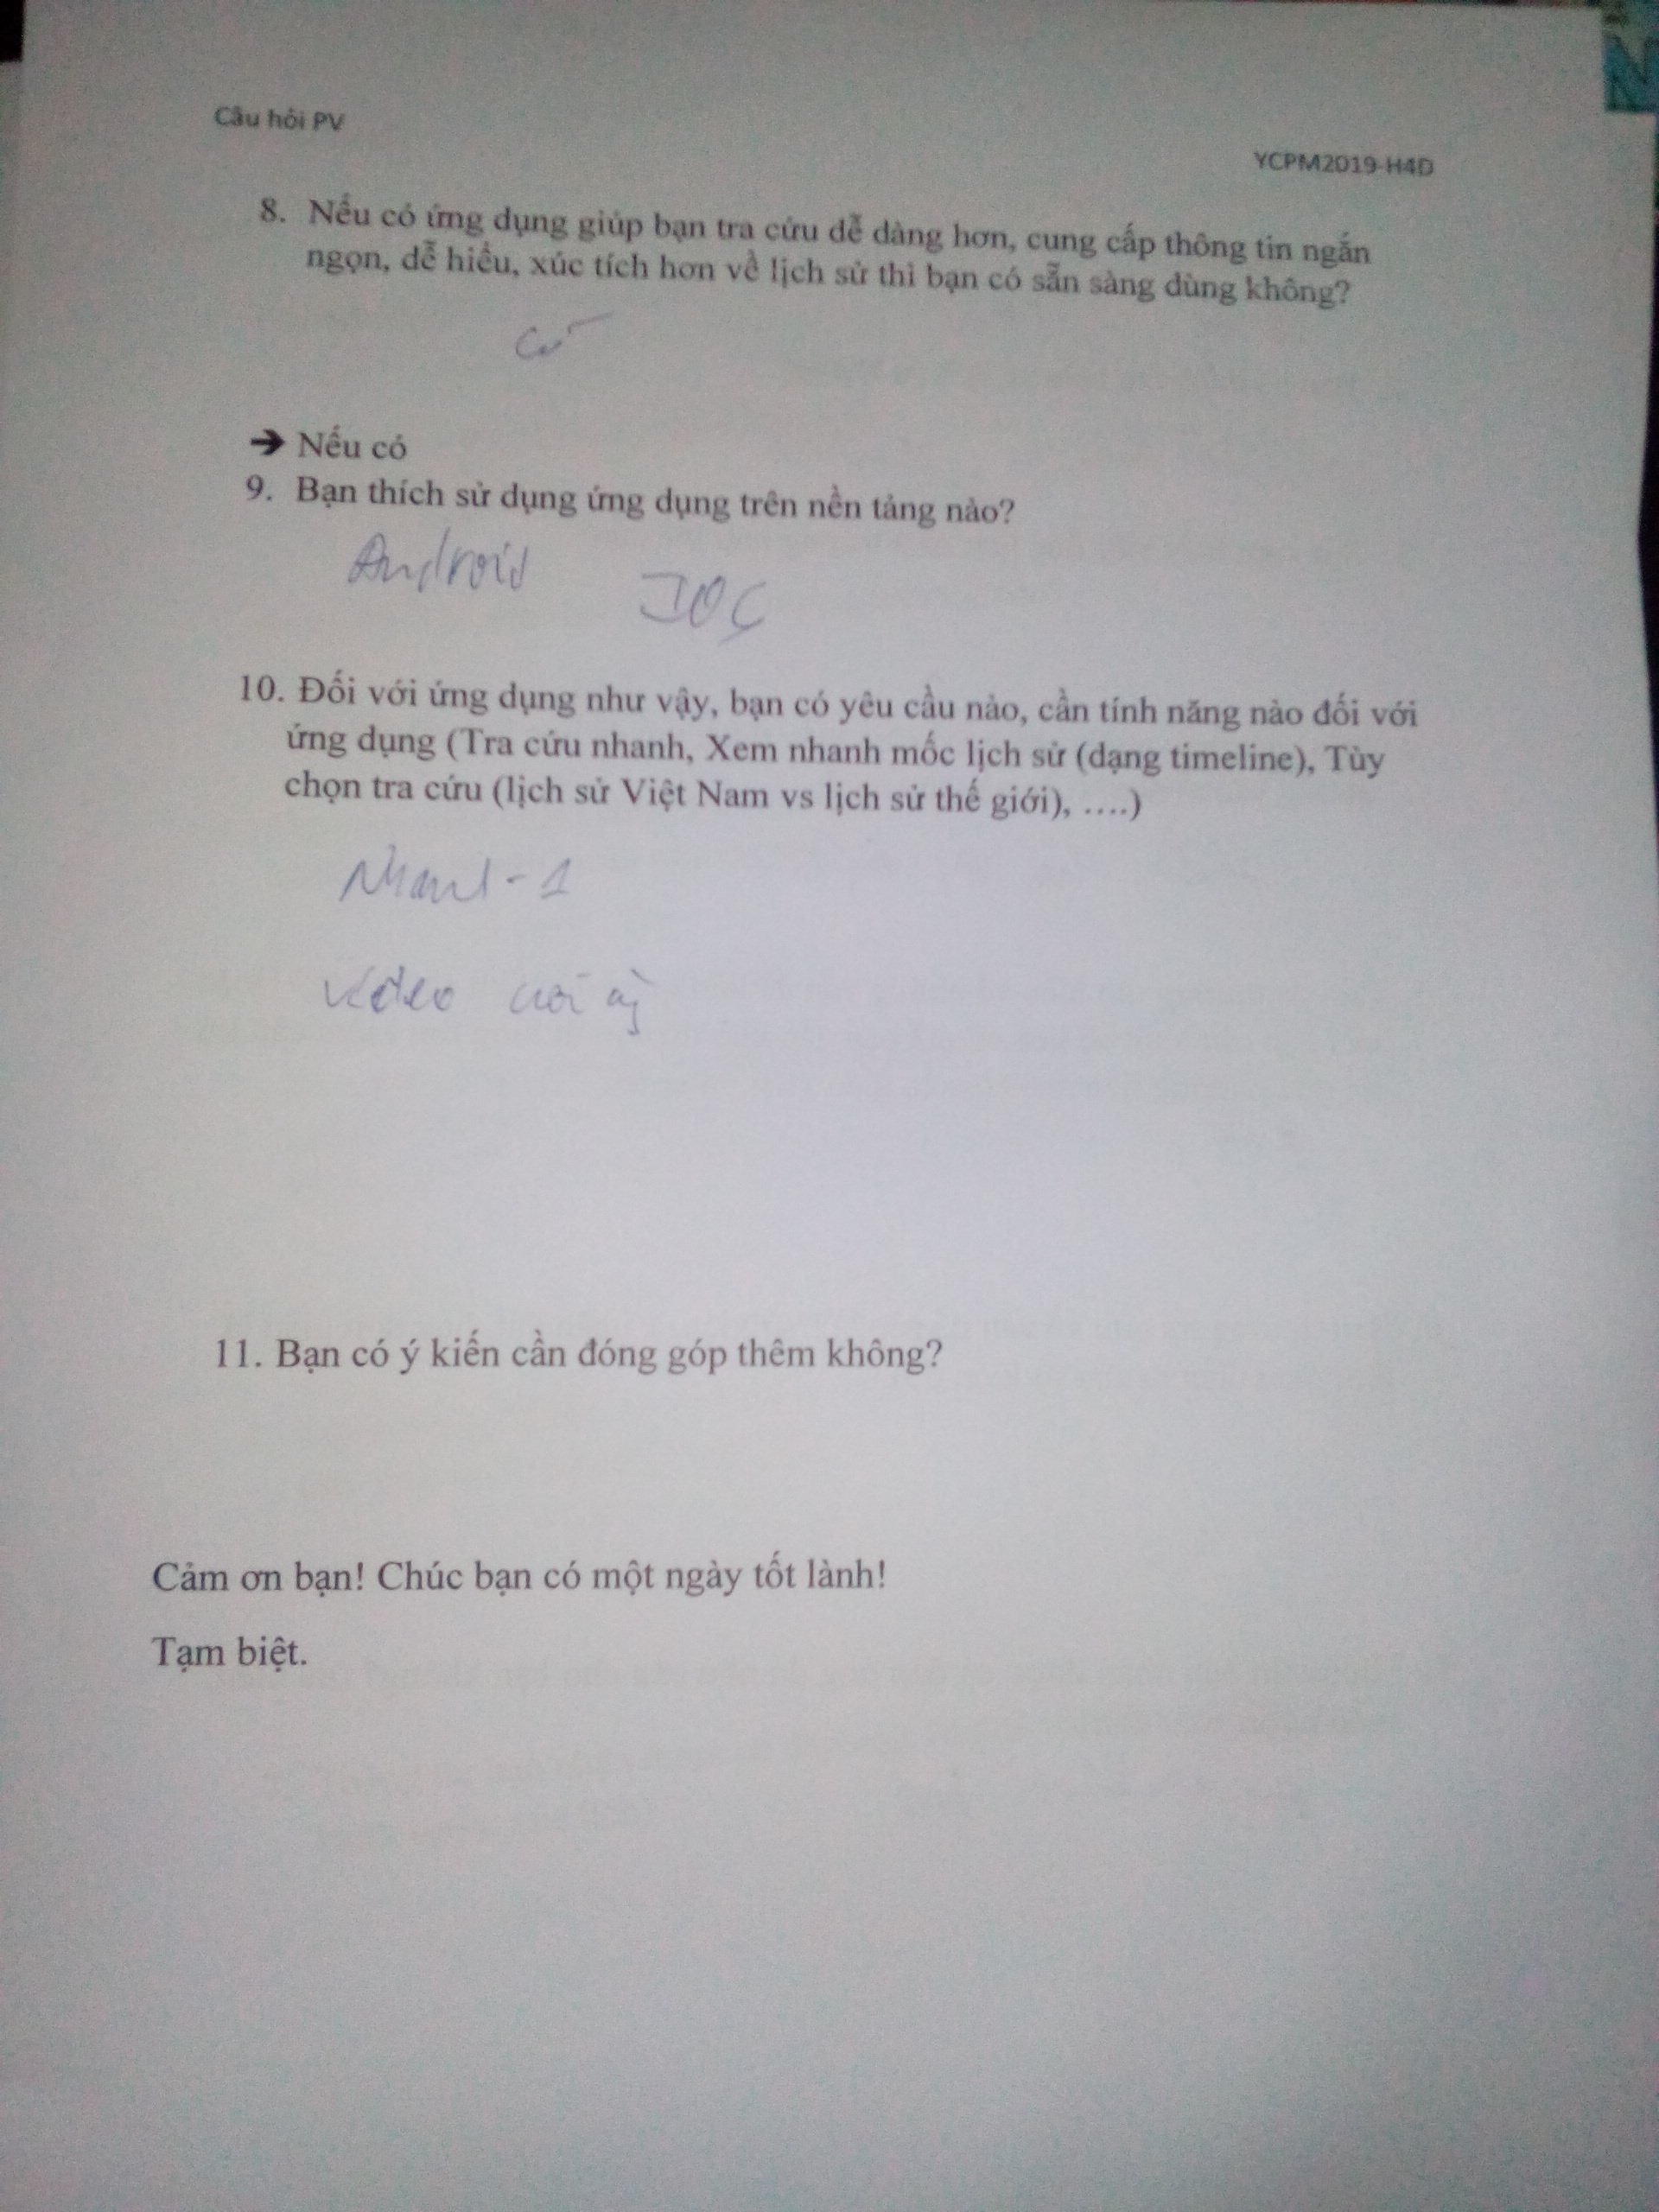 Câu hỏi PV
YCPM2019-H4D
8. Nếu có ứng dụng giúp bạn tra cứu dễ dàng hơn, cung cấp thông tin ngắn
ngọn, dễ hiểu, xúc tích hơn về lịch sử thì bạn có sẵn sàng dùng không?
Có
➔ Nếu có
9. Bạn thích sử dụng ứng dụng trên nền tảng nào?
Android IOS
10. Đối với ứng dụng như vậy, bạn có yêu cầu nào, cần tính năng nào đối với
ứng dụng (Tra cứu nhanh, Xem nhanh mốc lịch sử (dạng timeline), Tùy
chọn tra cứu (lịch sử Việt Nam vs lịch sử thế giới), ….)
Nhanh - 1
Video
11. Bạn có ý kiến cần đóng góp thêm không?
Cảm ơn bạn! Chúc bạn có một ngày tốt lành!
Tạm biệt.